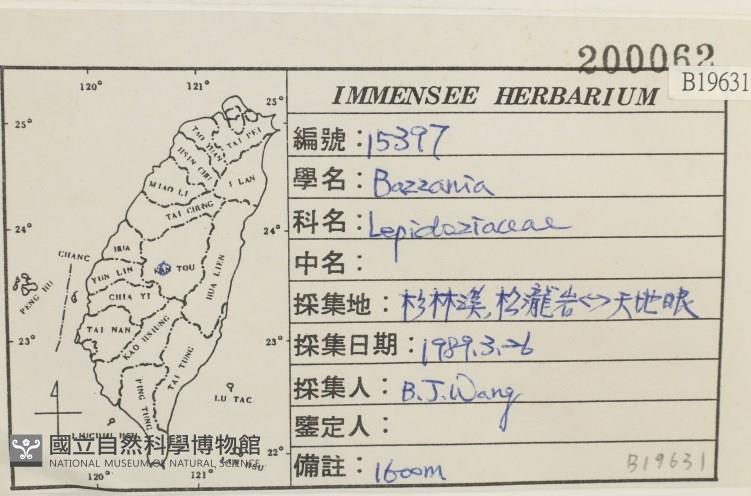 200062
B19631
IMMENSEE HERBARIUM
編號：15397
學名：Bazzania
科名：Lepidoziaceae
中名：
採集地：杉林溪，松瀧岩<->天地眼
採集日期：1989.3.26
採集人：B.J.Wang
鑒定人：
備註：1600m
B19631
120° 121°
25° 25°
24° 24°
23° 23°
22°
120° 121°
TAI PEI
TAO YUAN
HSIN CHU
I LAN
MIAO LI
TAI CHUNG
CHANG HUA
NAN TOU
HUA LIEN
YUN LIN
CHIA YI
PENG HU
TAI NAN
KAO HSIUNG
TAI TUNG
PING TUNG
LU TAO
國立自然科學博物館
NATIONAL MUSEUM OF NATURAL SCIENCE